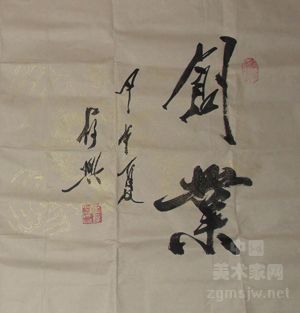 創業
甲午夏
中国
美术家网
zgmsjw.net.cn